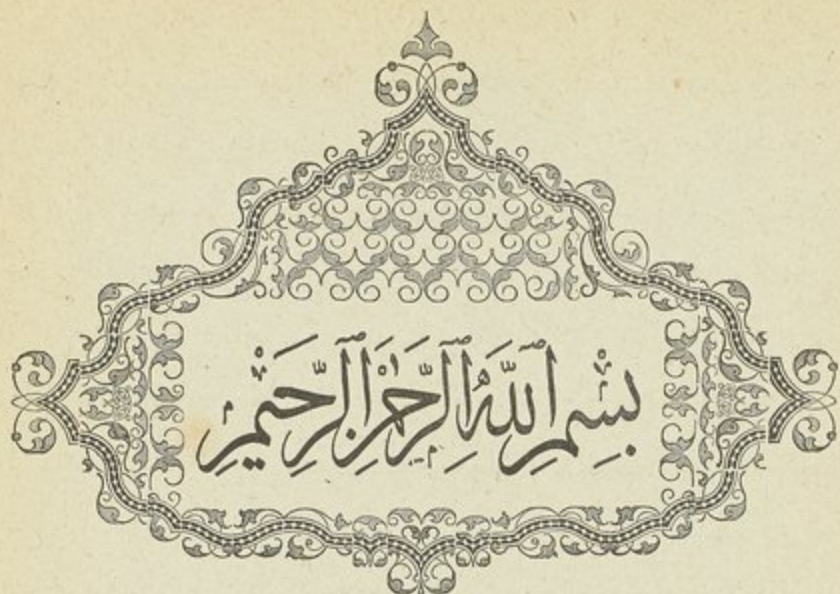 بِسْمِ ٱللّٰهِ ٱلرَّحْمٰنِ ٱلرَّحِيْمِ